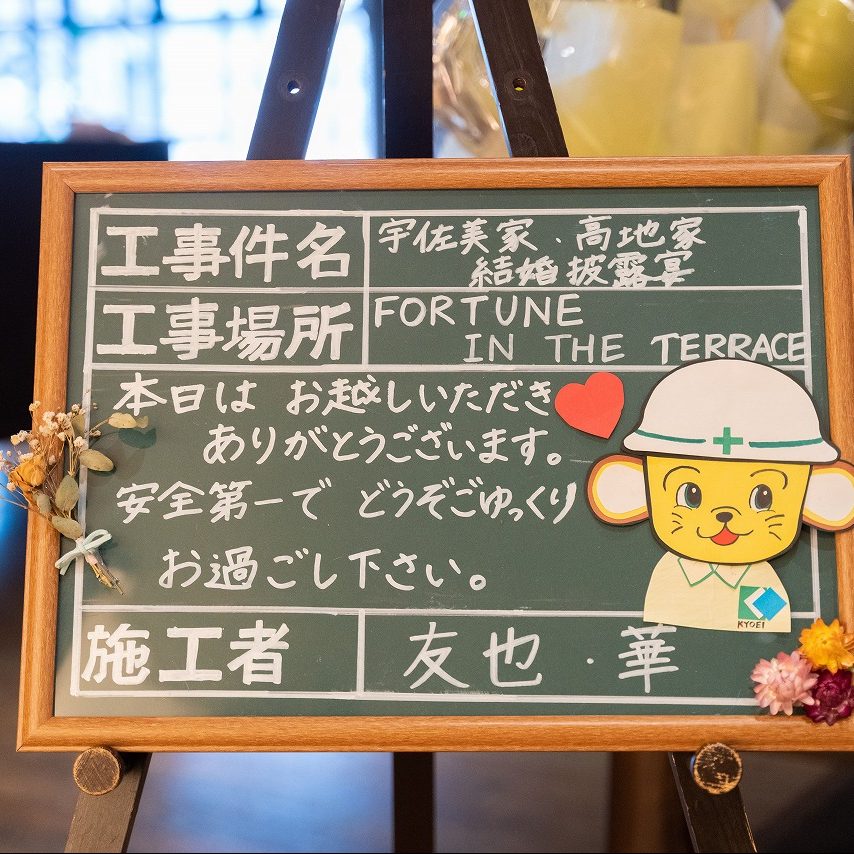 工事件名
宇佐美家・高地家
結婚披露宴
工事場所
FORTUNE
IN THE TERRACE
本日は お越しいただき
ありがとうございます。
安全第一で どうぞごゆっくり
お過ごし下さい。
KYOEI
施工者
友也・華